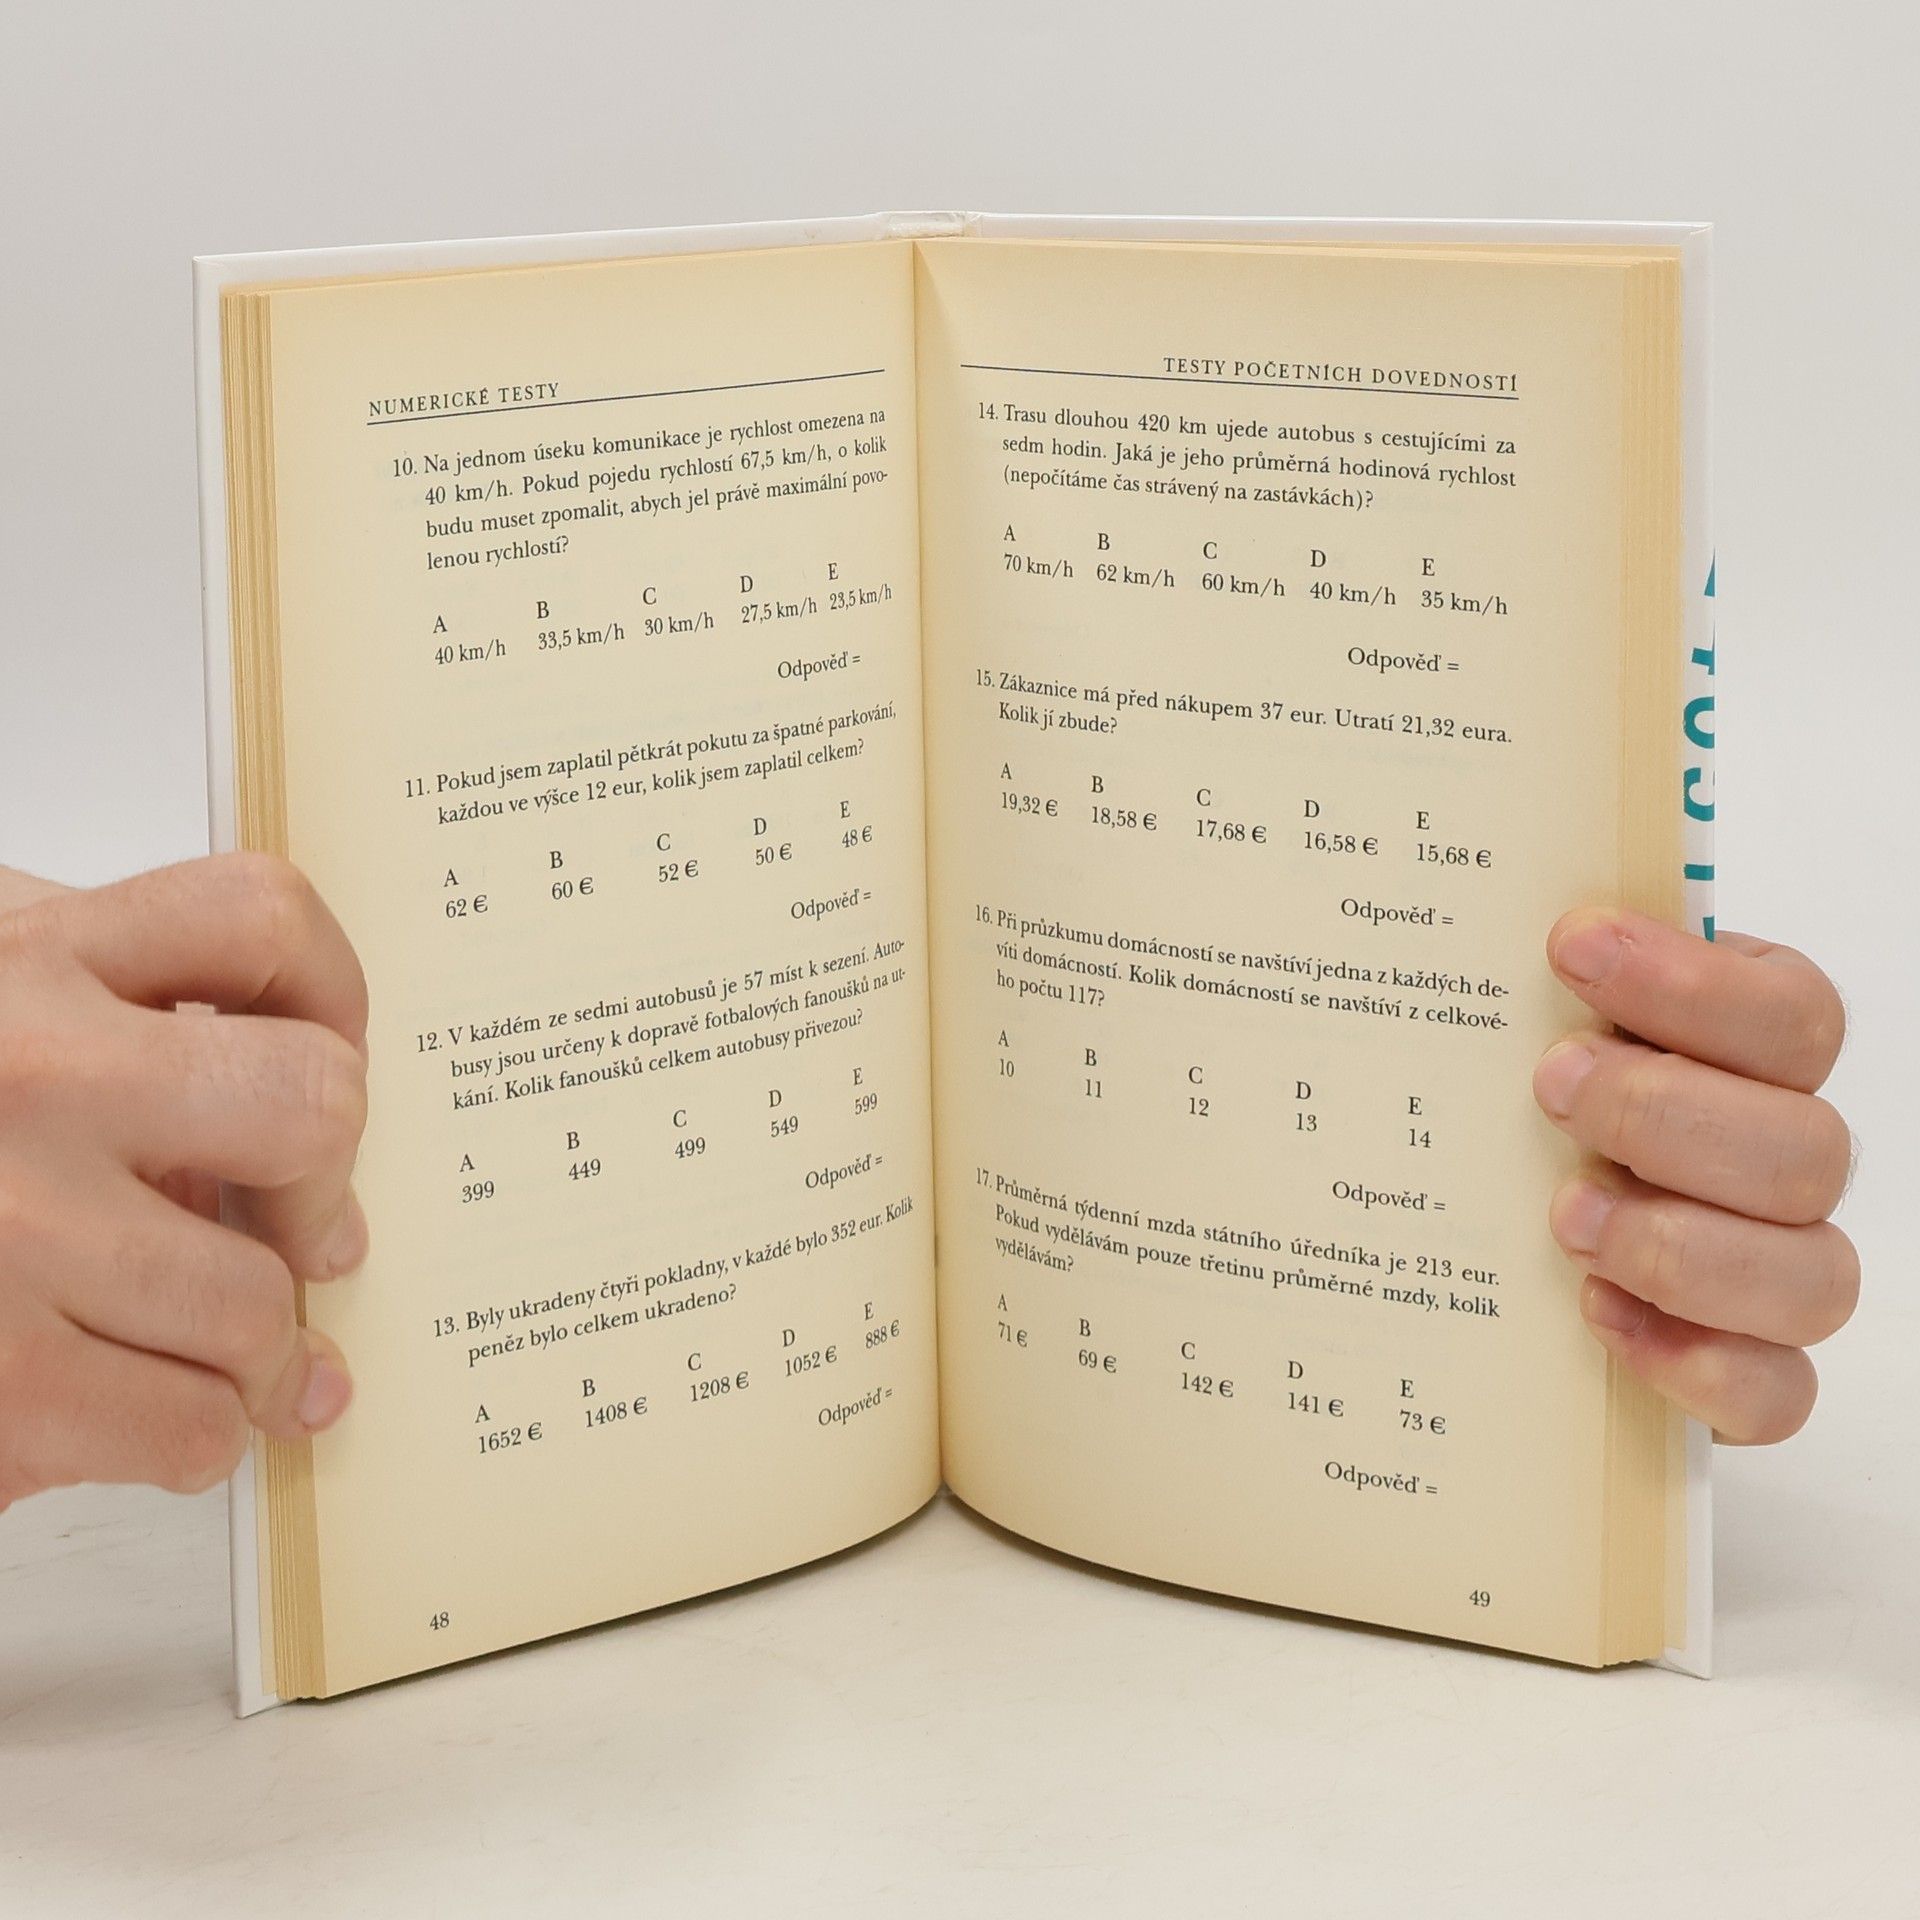 NUMERICKÉ TESTY
10. Na jednom úseku komunikace je rychlost omezena na
40 km/h. Pokud pojedu rychlostí 67,5 km/h, o kolik
budu muset zpomalit, abych jel právě maximální povo-
lenou rychlostí?
A B C D E
40 km/h 33,5 km/h 30 km/h 27,5 km/h 23,5 km/h
Odpověď =
11. Pokud jsem zaplatil pětkrát pokutu za špatné parkování,
každou ve výšce 12 eur, kolik jsem zaplatil celkem?
A B C D E
62 € 60 € 52 € 50 € 48 €
Odpověď =
12. V každém ze sedmi autobusů je 57 míst k sezení. Auto-
busy jsou určeny k dopravě fotbalových fanoušků na ut-
kání. Kolik fanoušků celkem autobusy přivezou?
A B C D E
399 449 499 549 599
Odpověď =
13. Byly ukradeny čtyři pokladny, v každé bylo 352 eur. Kolik
peněz bylo celkem ukradeno?
A B C D E
1652 € 1408 € 1208 € 1052 € 888 €
Odpověď =
48
TESTY POČETNÍCH DOVEDNOSTÍ
14. Trasu dlouhou 420 km ujede autobus s cestujícími za
sedm hodin. Jaká je jeho průměrná hodinová rychlost
(nepočítáme čas strávený na zastávkách)?
A B C D E
70 km/h 62 km/h 60 km/h 40 km/h 35 km/h
Odpověď =
15. Zákaznice má před nákupem 37 eur. Utratí 21,32 eura.
Kolik jí zbude?
A B C D E
19,32 € 18,58 € 17,68 € 16,58 € 15,68 €
Odpověď =
16. Při průzkumu domácností se navštíví jedna z každých de-
víti domácností. Kolik domácností se navštíví z celkové-
ho počtu 117?
A B C D E
10 11 12 13 14
Odpověď =
17. Průměrná týdenní mzda státního úředníka je 213 eur.
Pokud vydělávám pouze třetinu průměrné mzdy, kolik
vydělávám?
A B C D E
71 € 69 € 142 € 141 € 73 €
Odpověď =
49